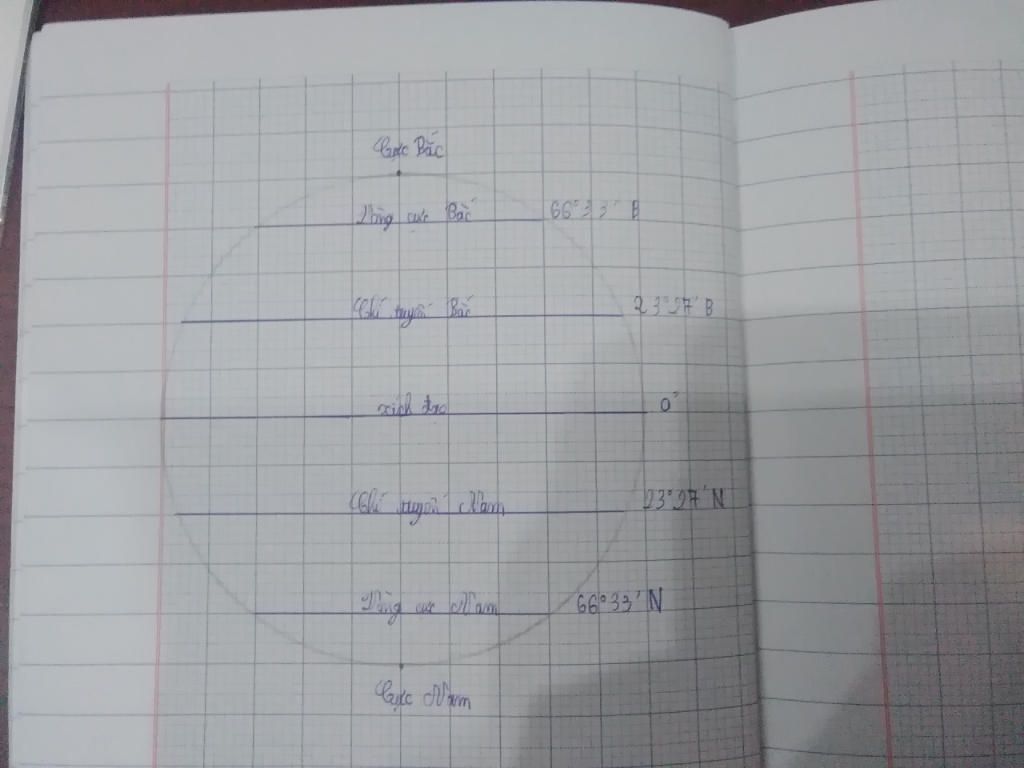 Cực Bắc
Vòng cực Bắc 66°33' B
Chí tuyến Bắc 23°27' B
xích đạo 0°
Chí tuyến Nam 23°27' N
Vòng cực Nam 66°33' N
Cực Nam